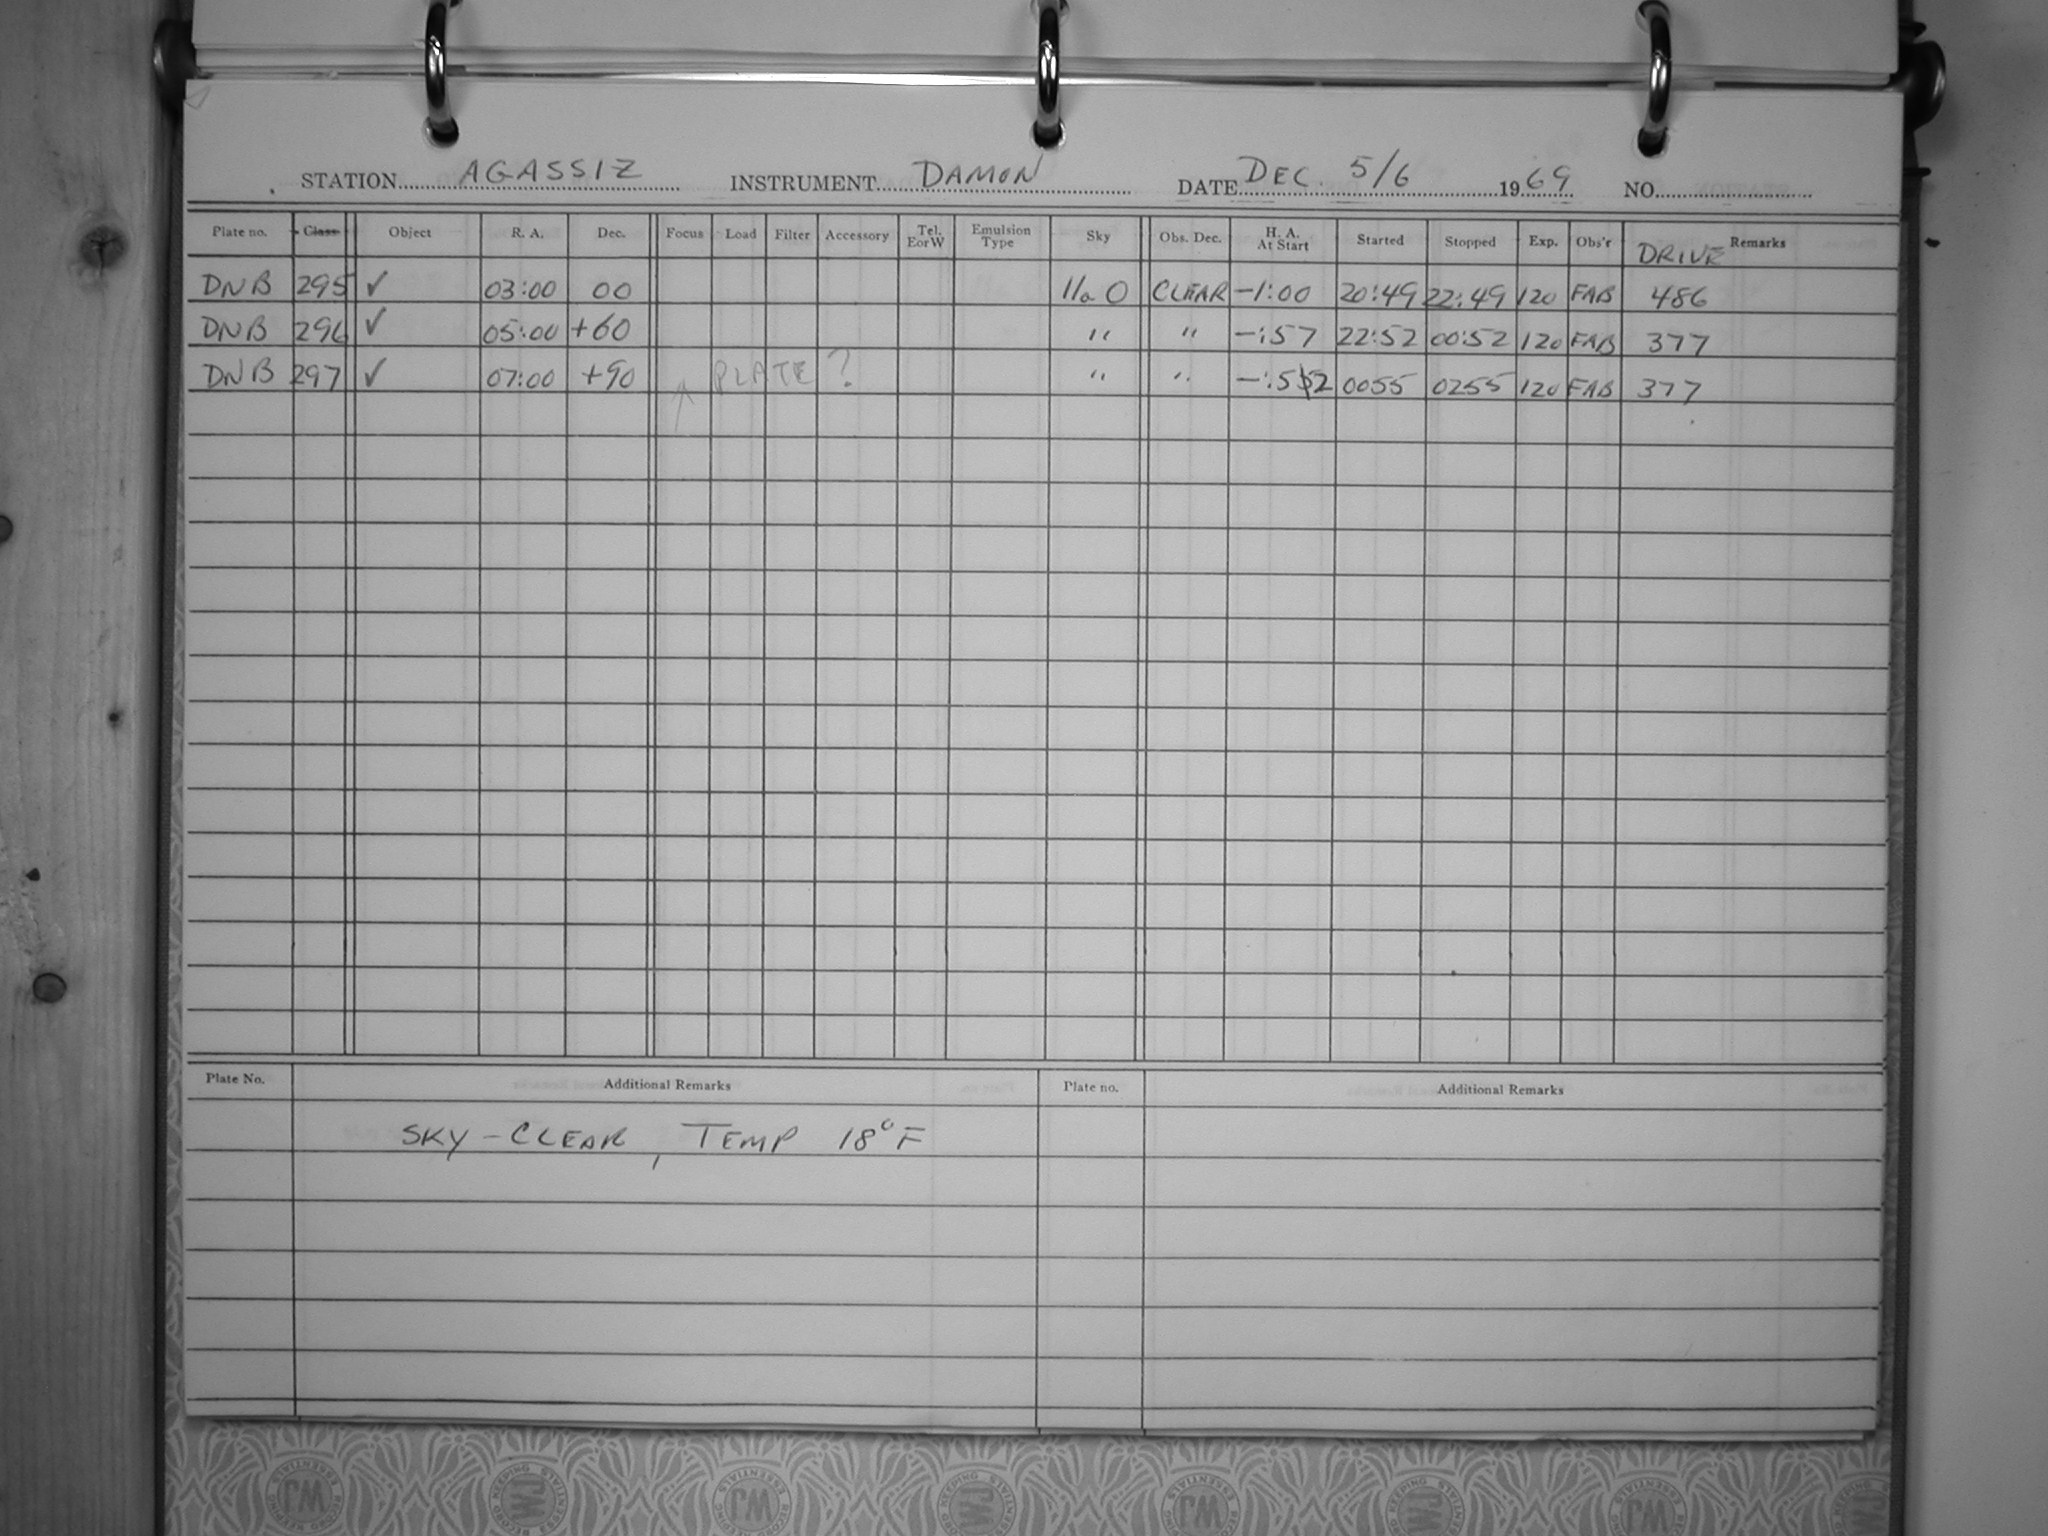 STATION AGASSIZ INSTRUMENT DAMON DATE DEC. 5/6 1969 NO.
Plate no. Class Object R. A. Dec. Focus Load Filter Accessory Tel. E or W Emulsion Type Sky Obs. Dec. H. A. At Start Started Stopped Exp. Obs'r DRIVE Remarks
DNB 295 ✓ 03:00 00 IIa O CLEAR -1:00 20:49 22:49 120 FAB 486
DNB 296 ✓ 05:00 +60 " " -:57 22:52 00:52 120 FAB 377
DNB 297 ✓ 07:00 +90 ↑ PLATE ? " " -:52 0055 0255 120 FAB 377
Plate No. Additional Remarks Plate no. Additional Remarks
SKY - CLEAR, TEMP 18°F